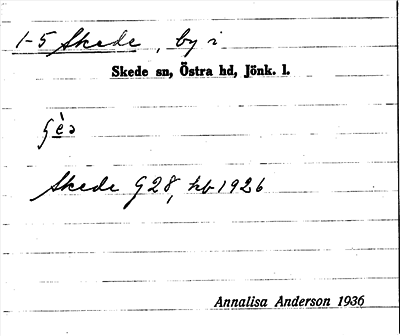 1-5 Skede, by i
Skede sn, Östra hd, Jönk. l.
Skede G28, kb 1926
Annalisa Anderson 1936